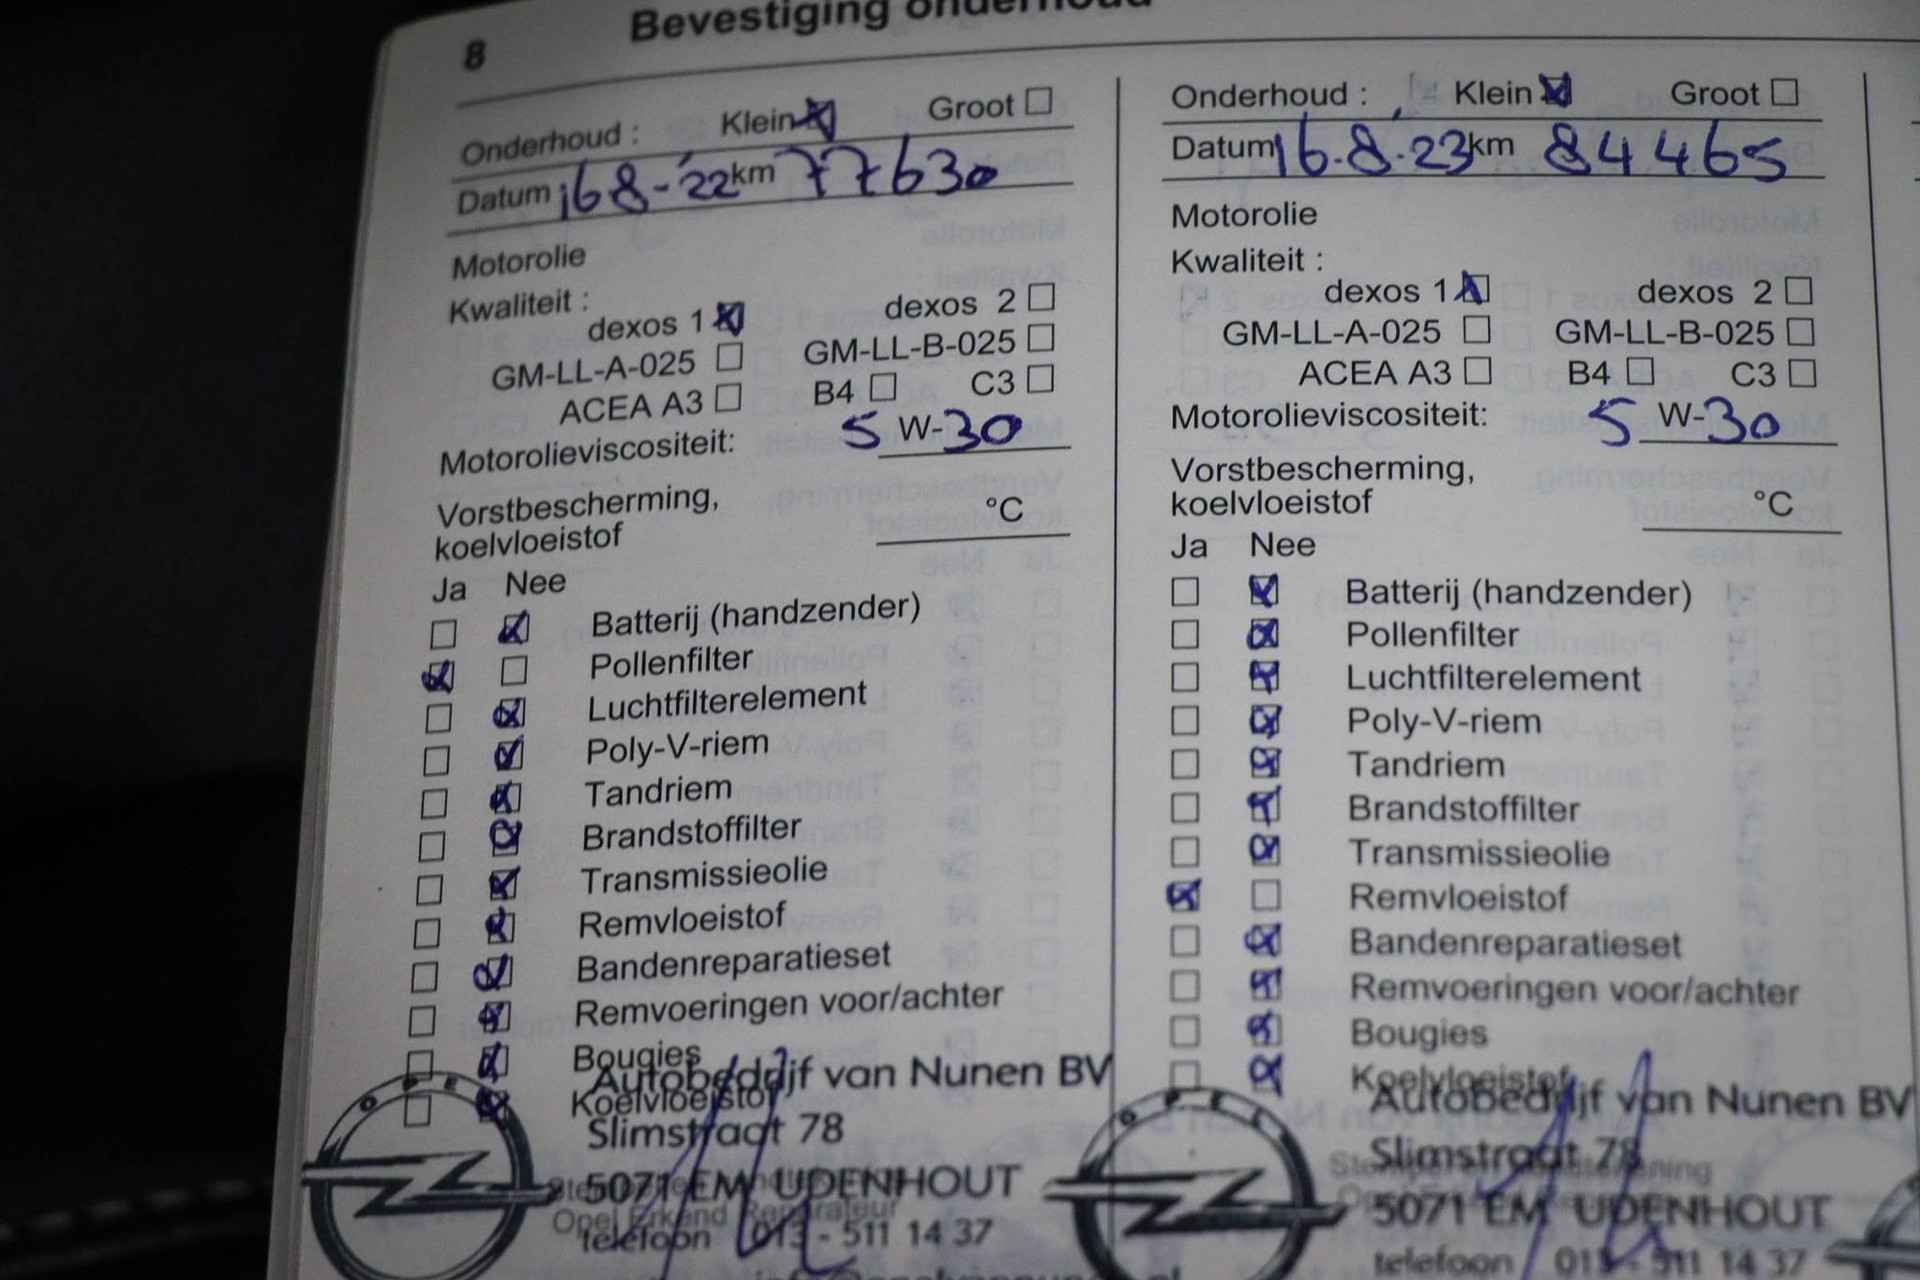 8
Bevestiging onderhoud
Onderhoud : Klein Groot
Datum 16-8-'22 km 77630
Motorolie
Kwaliteit :
dexos 1 dexos 2
GM-LL-A-025 GM-LL-B-025
ACEA A3 B4 C3
Motorolieviscositeit: 5 W-30
Vorstbescherming,
koelvloeistof °C
Ja Nee
Batterij (handzender)
Pollenfilter
Luchtfilterelement
Poly-V-riem
Tandriem
Brandstoffilter
Transmissieolie
Remvloeistof
Bandenreparatieset
Remvoeringen voor/achter
Bougies
Koelvloeistof
OPEL
Autobedrijf van Nunen BV
Slimstraat 78
5071 EM UDENHOUT
Opel Erkend Reparateur
telefoon 013 - 511 14 37
Onderhoud : Klein Groot
Datum 16.8.'23 km 84465
Motorolie
Kwaliteit :
dexos 1 dexos 2
GM-LL-A-025 GM-LL-B-025
ACEA A3 B4 C3
Motorolieviscositeit: 5 W-30
Vorstbescherming,
koelvloeistof °C
Ja Nee
Batterij (handzender)
Pollenfilter
Luchtfilterelement
Poly-V-riem
Tandriem
Brandstoffilter
Transmissieolie
Remvloeistof
Bandenreparatieset
Remvoeringen voor/achter
Bougies
Koelvloeistof
OPEL
Autobedrijf van Nunen BV
Slimstraat 78
5071 EM UDENHOUT
telefoon 013 - 511 14 37